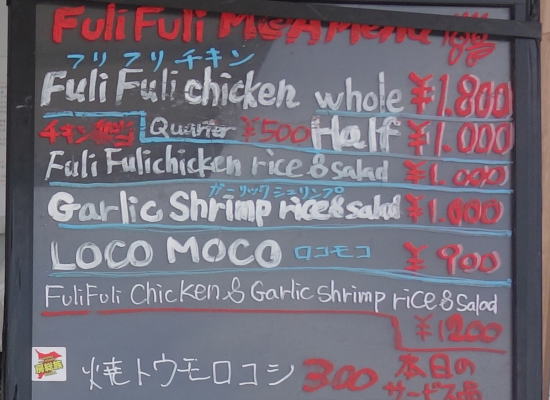 Fuli Fuli MEA Menu
フリ フリ チキン
Fuli Fuli chicken whole ¥1.800
チキン Quarter ¥500 Half ¥1.000
Fuli Fulichicken rice & salad ¥1.000
ガーリックシュリンプ
Garlic Shrimp rice & salad ¥1.000
LOCO MOCO ロコモコ ¥900
FuliFuli Chicken & Garlic shrimp rice & Salad
¥1200
焼トウモロコシ 300 本日の
サービス品